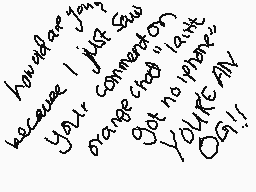 how old are you?
because I just saw
your comment on
orange chat "I aint
got no iphone"
YOU'RE AN
OG!!